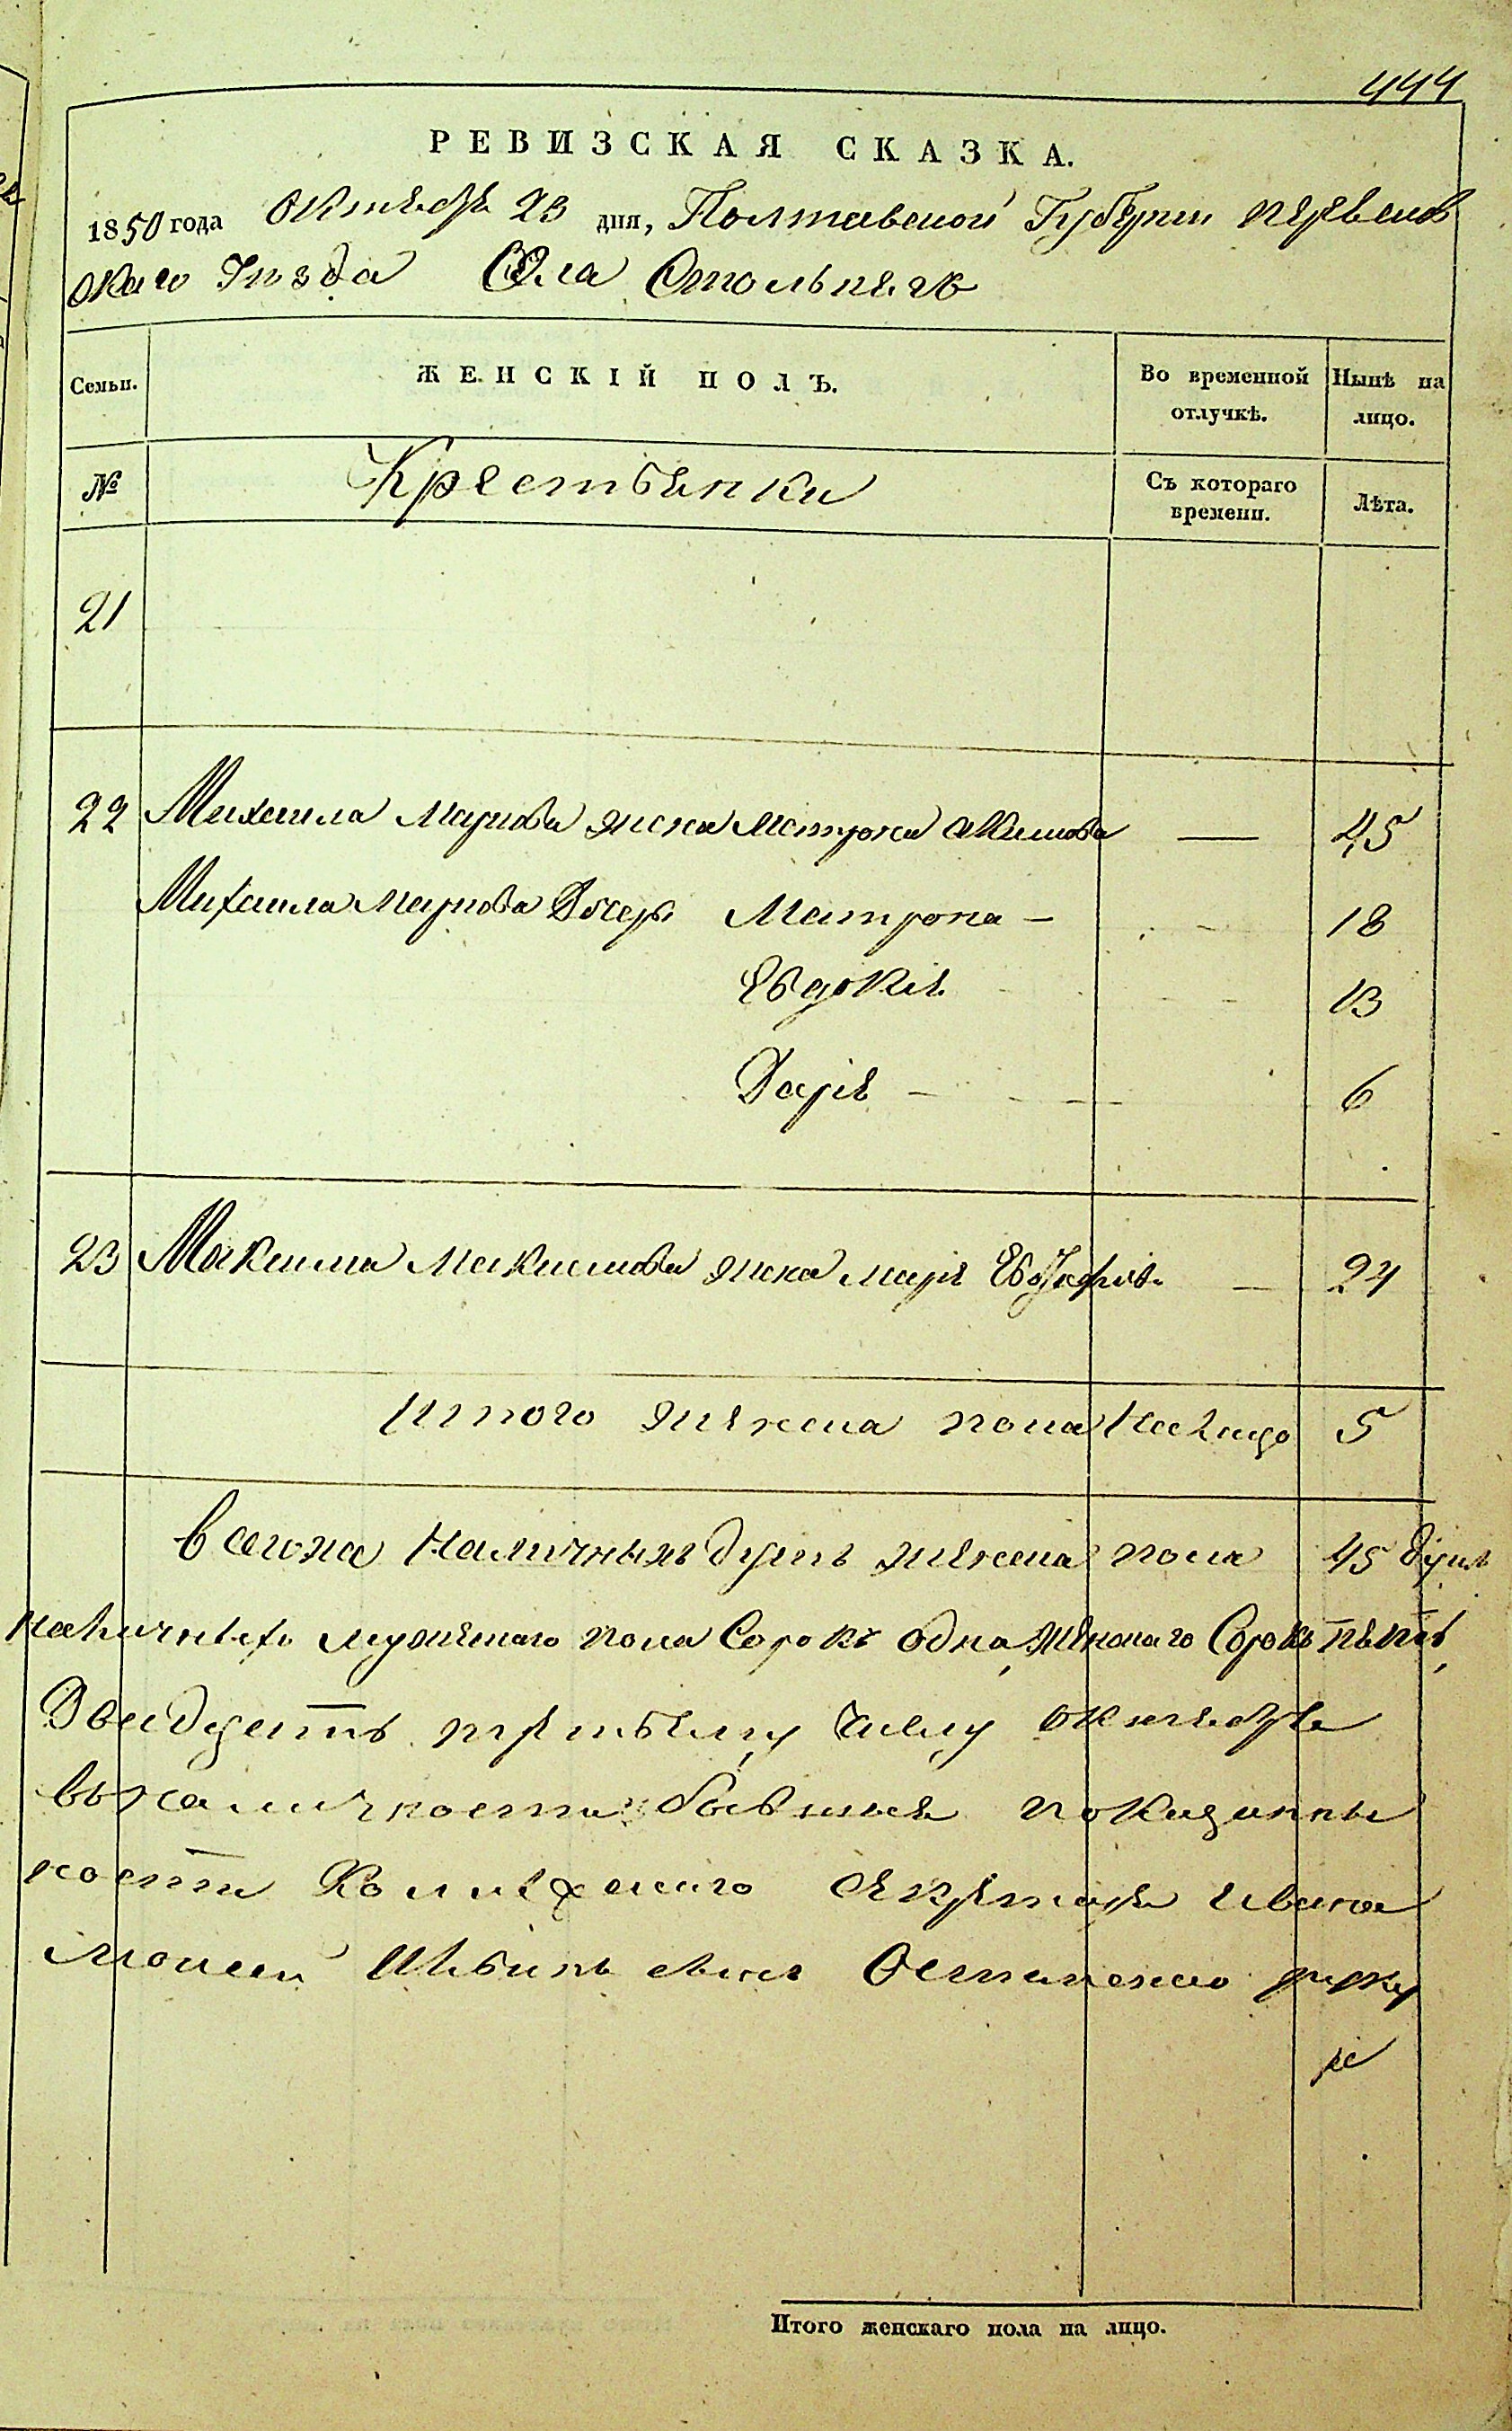 444
РЕВИЗСКАЯ СКАЗКА.
1850 года Октября 23 дня, Полтавской Губерніи
скаго Уѣзда Села Столпягъ
Семьи. ЖЕНСКІЙ ПОЛЪ. Во временной отлучкѣ. Нынѣ на лицо.
№ Крестьянки Съ котораго времени. Лѣта.
21
22 Михаила Маркова жена Матрона Акимова — 45
Михаила Маркова Дочери Матрона — 18
Евдокія 13
Дарія — 6
23 Максима Максимова жена Марія — 24
Итого женска пола На лицо 5
Всего на Наличныхъ душъ женска пола 45 душъ
Наличныхъ мужескаго пола Сорокъ одна, женскаго Сорокъ пять,
Двадцать третьему числу октября
въ наличности бывшыя
ности секретаря Ивана
руку
Итого женскаго пола на лицо.